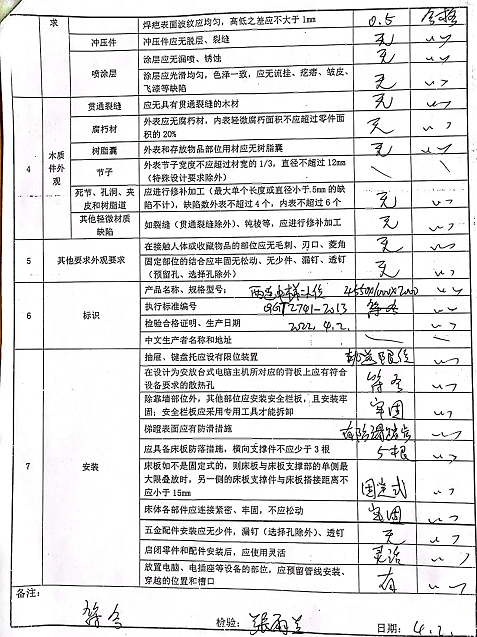 求 焊疤表面波纹应均匀，高低之差应不大于1mm 0.5 合格
冲压件 冲压件应无脱层、裂缝 无
喷涂层 涂层应无漏喷、锈蚀 无
涂层应光滑均匀，色泽一致，应无流挂、疙瘩、皱皮、
飞漆等缺陷 无
4 木质件外观 贯通裂缝 应无具有贯通裂缝的木材 无
腐朽材 外表应无腐朽材，内表轻微腐朽面积不应超过零件面
积的20% 无
树脂囊 外表和存放物品部位用材应无树脂囊 无
节子 外表节子宽度不应超过材宽的1/3，直径不超过12mm
（特殊设计要求除外）
死节、孔洞、夹
皮和树脂道 应进行修补加工（最大单个长度或直径小于.5mm的缺
陷不计），缺陷数外表不超过4个，内表不超过6个 无
其他轻微材质
缺陷 如裂缝（贯通裂缝除外）、钝棱等，应进行修补加工 无
5 其他要求外观要求 在接触人体或收藏物品的部位应无毛刺、刃口、棱角 无
固定部位的结合应牢固无松动、无少件、漏钉、透钉
（预留孔、选择孔除外） 无
6 标识 产品名称、规格型号：
执行标准编号 2741-2013 符合
检验合格证明、生产日期 2022.4.2.
中文生产者名称和地址
7 安装 抽屉、键盘托应设有限位装置
在设计为安放台式电脑主机所对应的背板上应有符合
设备要求的散热孔 符合
除靠墙部位外，其他部位应安装安全栏板，且安装牢
固；安全栏板应采用专用工具才能拆卸 牢固
梯蹬表面应有防滑措施
应具备床板防落措施，横向支撑件不应少于3根 5根
床板如不是固定式的，则床板与床板支撑部的单侧最
大限叠放时，另一侧的床板支撑件与床板搭接距离不
应小于15mm 固定式
床体各部件应连接紧密、牢固，不应松动 牢固
五金配件安装应无少件、漏钉（选择孔除外）、透钉 无
启闭零件和配件安装后，应使用灵活 灵活
放置电脑、电插座等设备的部位，应预留管线安装、
穿越的位置和槽口 有
备注：
符合
检验： 日期：4.2.